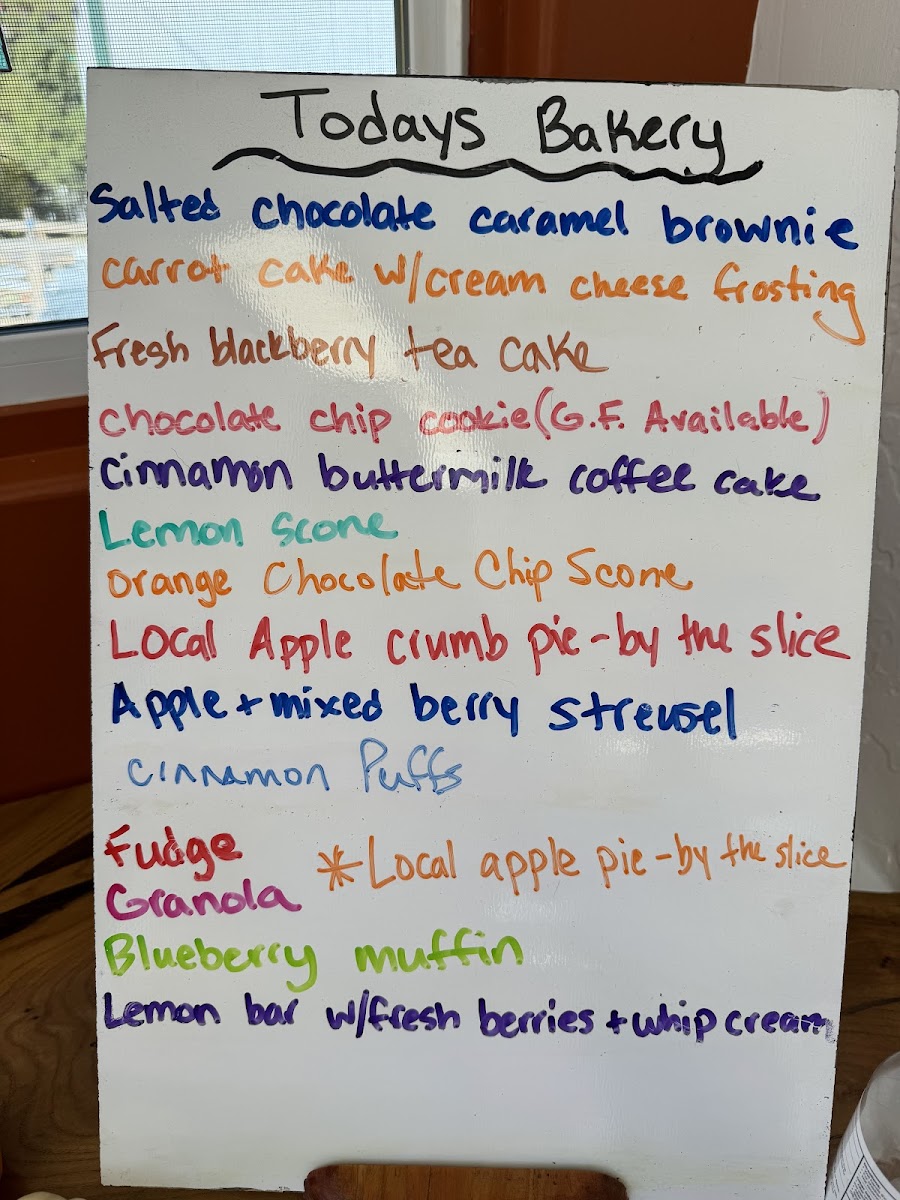 Todays Bakery
Salted chocolate caramel brownie
carrot cake w/cream cheese frosting
Fresh blackberry tea cake
chocolate chip cookie (G.F. Available)
Cinnamon buttermilk coffee cake
Lemon scone
orange Chocolate Chip Scone
Local Apple crumb pie-by the slice
Apple + mixed berry streusel
cinnamon Puffs
Fudge
*Local apple pie-by the slice
Granola
Blueberry muffin
Lemon bar w/fresh berries + whip cream